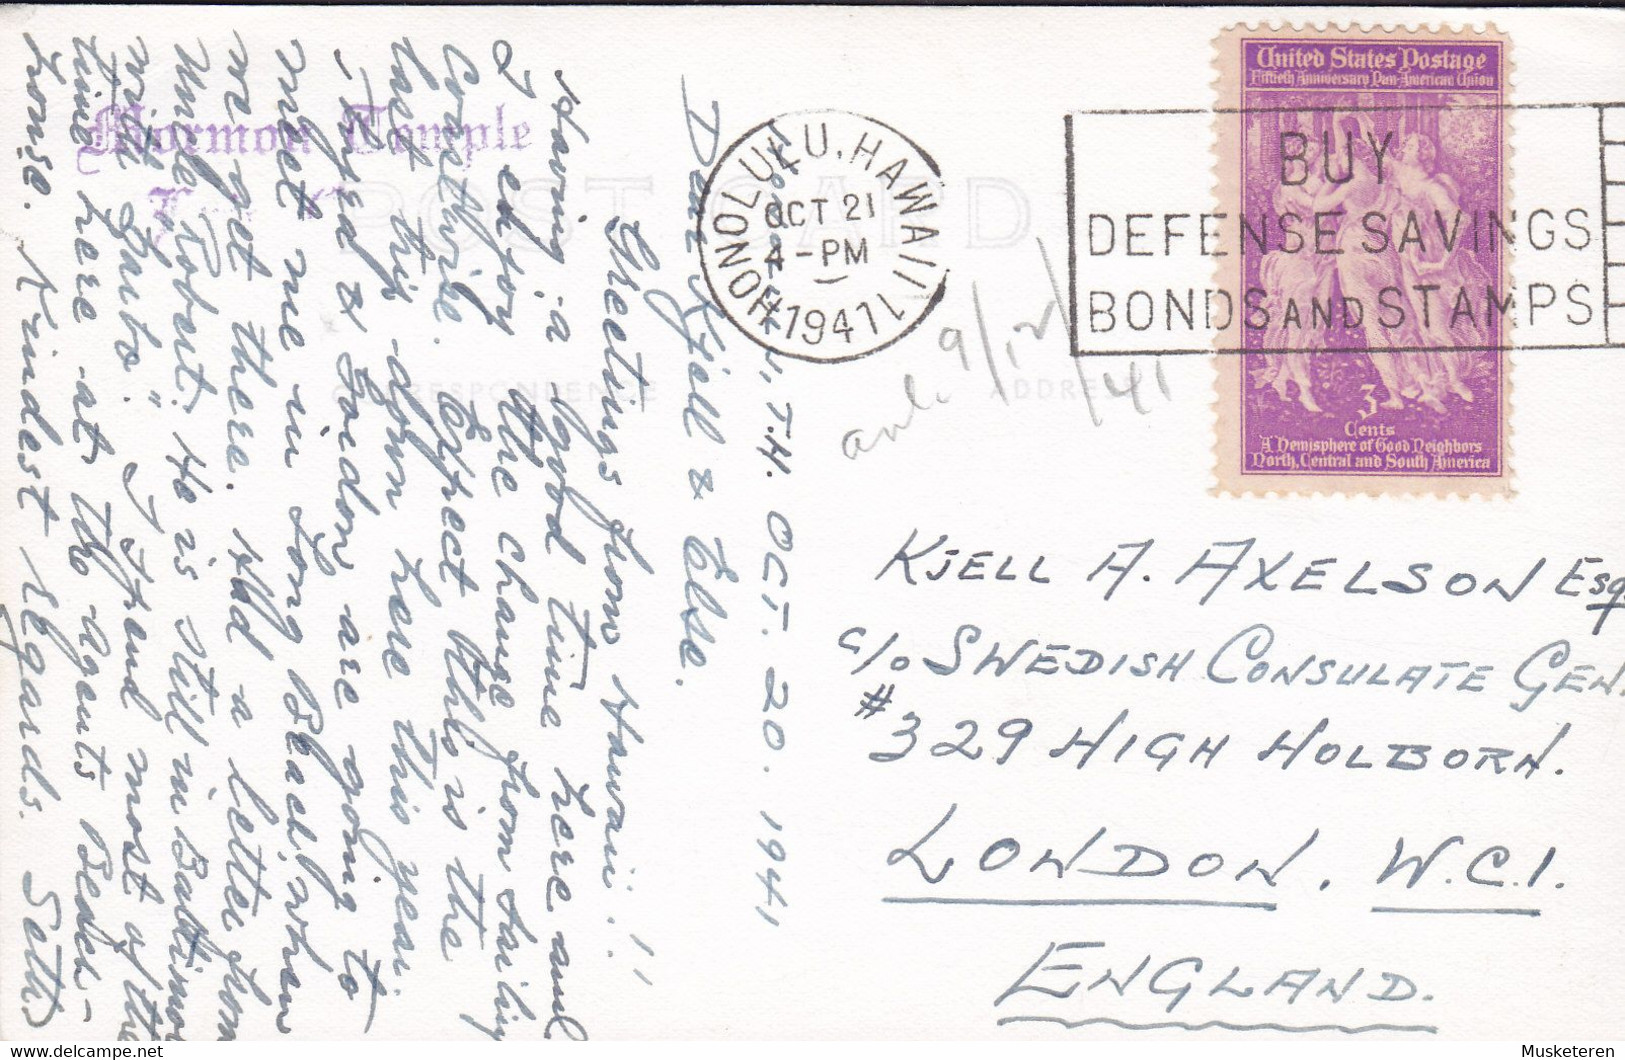 Mormon Temple
POST CARD
CORRESPONDENCE
ADDRESS
T.H. OCT. 20. 1941
Dear Kjell & Else.
Greetings from Hawaii!!
Having a good time here and
enjoy the change from sailing
Coastwise. Expect this is the
last trip down here this year.
Thyra & Gordon are going to
meet me in Long Beach when
we get there. Had a letter from
Uncle Robert. He is still in Baltimore
with
time here at the agents Beach-
house. Kindest regards. Seth
HONOLULU, HAWAII
OCT 21
4-PM
1941
BUY
DEFENSE SAVINGS
BONDS AND STAMPS
United States Postage
Fiftieth Anniversary Pan-American Union
3
Cents
"A Hemisphere of Good Neighbors
North, Central and South America
9/12/41
KJELL A. AXELSON Esq
c/o SWEDISH CONSULATE GEN
#329 HIGH HOLBORN.
LONDON. W.C.1.
ENGLAND.
Musketeren on delcampe.net